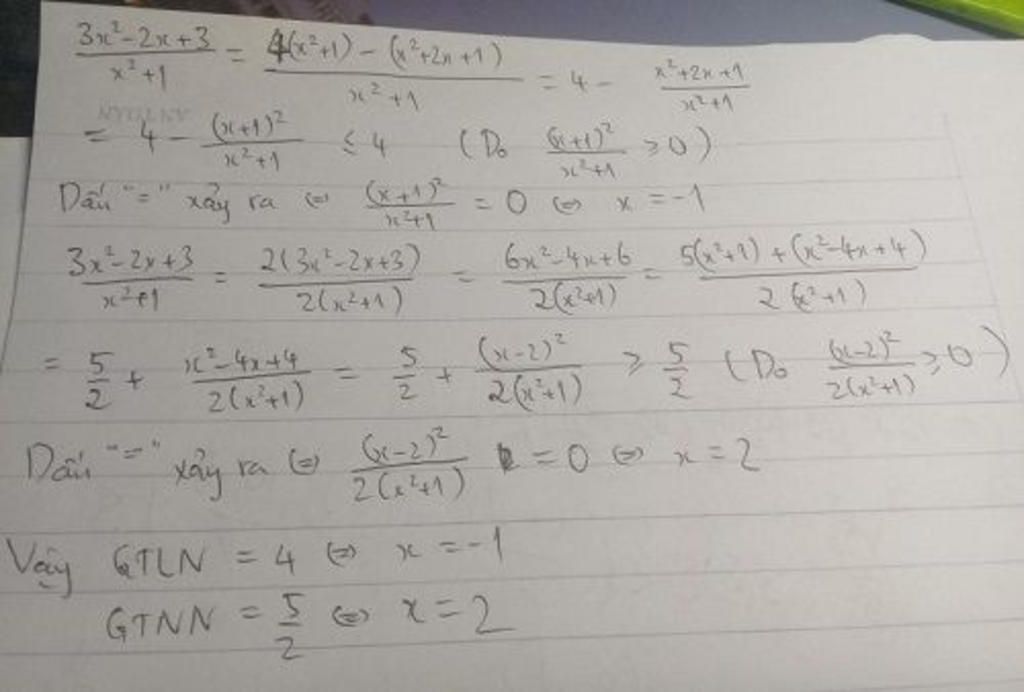 (3x²-2x+3)/(x²+1) = (4(x²+1) - (x²+2x+1))/(x²+1) = 4 - (x²+2x+1)/(x²+1)
= 4 - (x+1)²/(x²+1) ≤ 4 (Do (x+1)²/(x²+1) ≥ 0)
Dấu "=" xảy ra ⇔ (x+1)²/(x²+1) = 0 ⇔ x = -1
(3x²-2x+3)/(x²+1) = 2(3x²-2x+3)/2(x²+1) = (6x²-4x+6)/2(x²+1) = (5(x²+1) + (x²-4x+4))/2(x²+1)
= 5/2 + (x²-4x+4)/2(x²+1) = 5/2 + (x-2)²/2(x²+1) ≥ 5/2 (Do (x-2)²/2(x²+1) ≥ 0)
Dấu "=" xảy ra ⇔ (x-2)²/2(x²+1) = 0 ⇔ x = 2
Vậy GTLN = 4 ⇔ x = -1
GTNN = 5/2 ⇔ x = 2